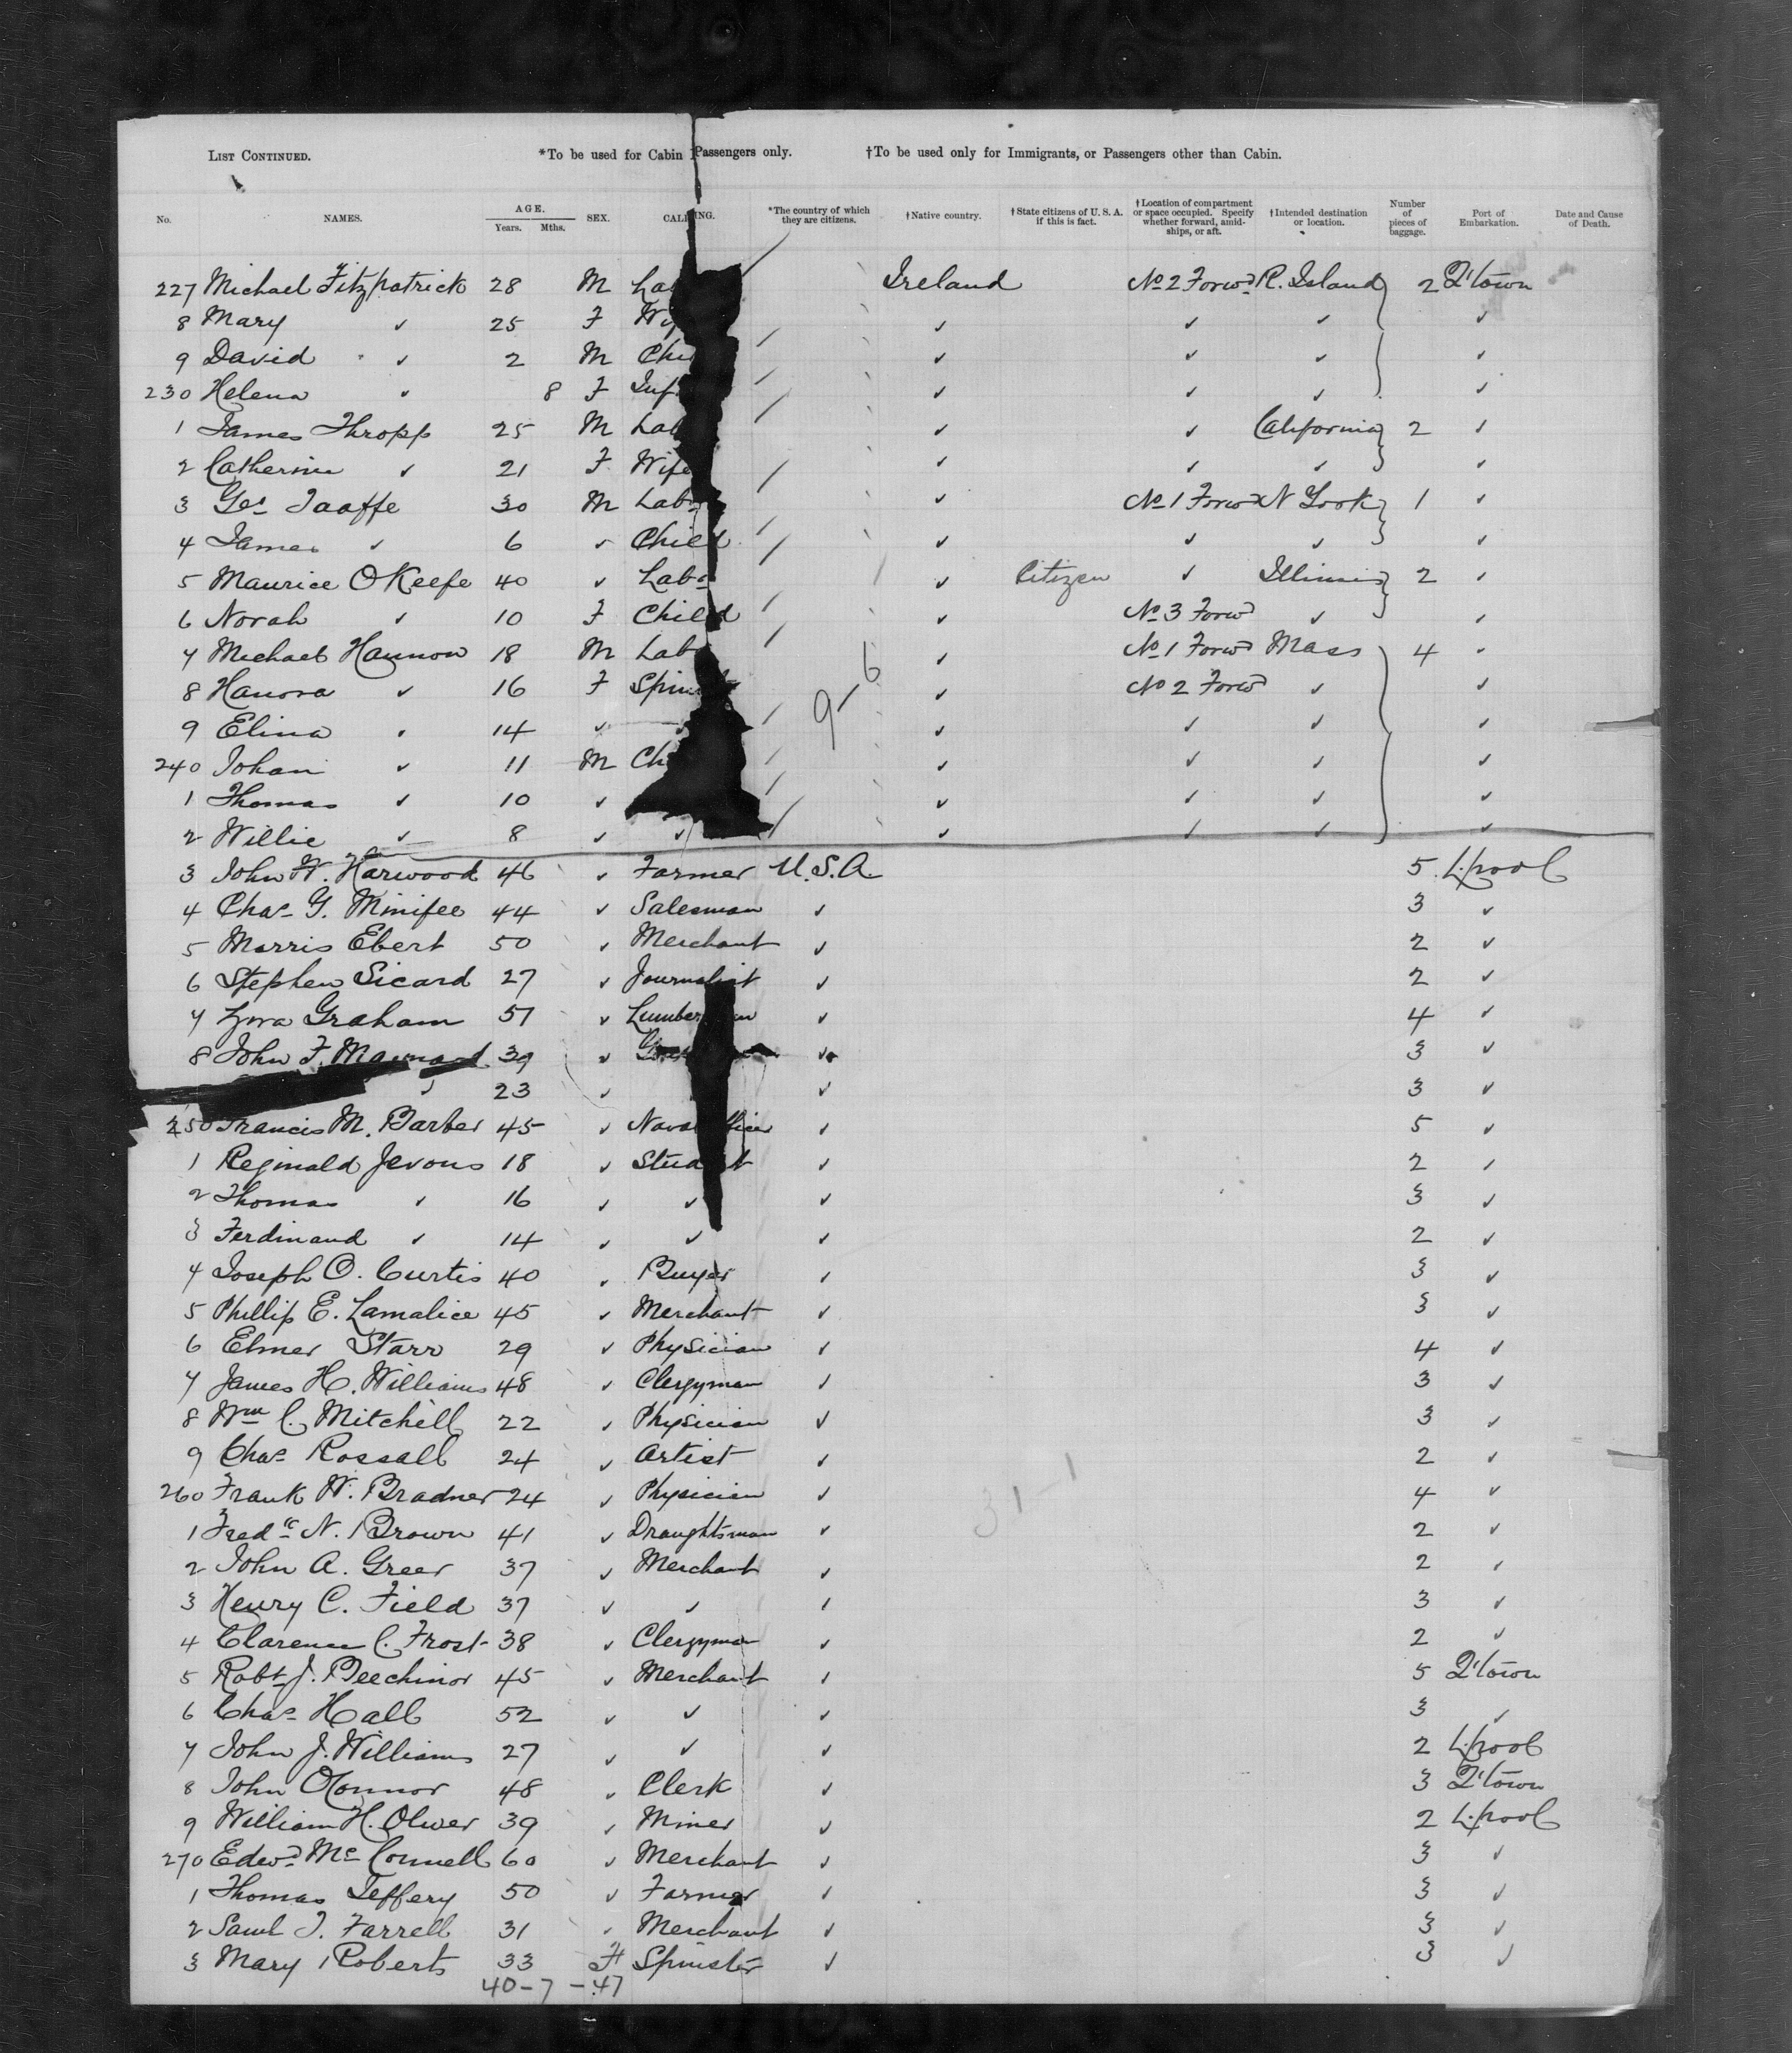 LIST CONTINUED. *To be used for Cabin Passengers only. †To be used only for Immigrants, or Passengers other than Cabin.
No. NAMES. AGE. Years. Mths. SEX. CALLING. *The country of which they are citizens. †Native country. †State citizens of U. S. A. if this is fact. †Location of compartment or space occupied. Specify whether forward, amidships, or aft. †Intended destination or location. Number of pieces of baggage. Port of Embarkation. Date and Cause of Death.
227 Michael Fitzpatrick 28 M Lab Ireland No 2 Forwd R. Island 2 Q'town
8 Mary ✓ 25 F W ✓ ✓ ✓ ✓
9 David ✓ 2 M Chi ✓ ✓ ✓ ✓
230 Helena ✓ 8 F Inf ✓ ✓ ✓ ✓
1 James Thropp 25 M Lab ✓ ✓ California 2 ✓
2 Catherine ✓ 21 F Wife ✓ ✓ ✓ ✓
3 Geo Taaffe 30 M Lab ✓ No 1 Forwd N York 1 ✓
4 James ✓ 6 ✓ Child ✓ ✓ ✓ ✓
5 Maurice OKeefe 40 ✓ Lab ✓ Citizen ✓ Illinois 2 ✓
6 Norah ✓ 10 F Child ✓ No 3 Forwd ✓ ✓
7 Michael Hannon 18 M Lab 6 ✓ No 1 Forwd Mass 4 ✓
8 Hanora ✓ 16 F Spin 9 ✓ No 2 Forwd ✓ ✓
9 Elina ✓ 14 ✓ ✓ ✓ ✓ ✓
240 Johan ✓ 11 M Ch ✓ ✓ ✓ ✓
1 Thomas ✓ 10 ✓ ✓ ✓ ✓ ✓
2 Willie ✓ 8 ✓ ✓ ✓ ✓ ✓ ✓
3 John W. Harwood 46 ✓ Farmer U.S.A. 5 L.pool
4 Chas G. Minifee 44 ✓ Salesman ✓ 3 ✓
5 Morris Ebert 50 ✓ Merchant ✓ 2 ✓
6 Stephen Sicard 27 ✓ Journalist ✓ 2 ✓
7 Ezra Graham 57 ✓ Lumberman ✓ 4 ✓
8 John F. Maynard 39 ✓ ✓ 3 ✓
✓ 23 ✓ ✓ 3 ✓
250 Francis M. Barber 45 ✓ Naval Officer ✓ 5 ✓
1 Reginald Jevons 18 ✓ Student ✓ 2 ✓
2 Thomas ✓ 16 ✓ ✓ ✓ 3 ✓
3 Ferdinand ✓ 14 ✓ ✓ ✓ 2 ✓
4 Joseph O. Curtis 40 ✓ Buyer ✓ 3 ✓
5 Phillip E. Lamalice 45 ✓ Merchant ✓ 3 ✓
6 Elmer Starr 29 ✓ Physician ✓ 4 ✓
7 James H. Williams 48 ✓ Clergyman ✓ 3 ✓
8 Wm C. Mitchell 22 ✓ Physician ✓ 3 ✓
9 Chas Rossall 24 ✓ Artist ✓ 2 ✓
260 Frank W. Bradner 24 ✓ Physician ✓ 4 ✓
1 Fredc N. Brown 41 ✓ Draughtsman ✓ 2 ✓
2 John A. Greer 37 ✓ Merchant ✓ 2 ✓
3 Henry C. Field 37 ✓ ✓ ✓ 3 ✓
4 Clarence C. Frost 38 ✓ Clergyman ✓ 2 ✓
5 Robt J. Beechinor 45 ✓ Merchant ✓ 5 Q'town
6 Chas Hall 52 ✓ ✓ ✓ 3 ✓
7 John J. Williams 27 ✓ ✓ ✓ 2 L.pool
8 John OConnor 48 ✓ Clerk ✓ 3 Q'town
9 William H. Oliver 39 ✓ Miner ✓ 2 L.pool
270 Edwd McConnell 60 ✓ Merchant ✓ 3 ✓
1 Thomas Jeffery 50 ✓ Farmer ✓ 3 ✓
2 Saml J. Farrell 31 ✓ Merchant ✓ 3 ✓
3 Mary Roberts 33 F Spinster ✓ 3 ✓
40-7-47
31-1